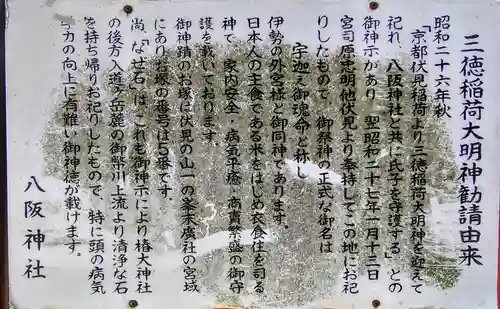 三徳稲荷大明神勧請由来
昭和二十六年秋
「京都伏見稲荷より三徳稲荷大明神を迎えて
祀れ、八阪神社と共に氏子を守護する」との
御神示があり、翌昭和二十七年一月十三日
宮司原忠明他伏見より奉持してこの地にお祀
りしたもので、御祭神の正式な御名は
宇迦之御魂命と称し
伊勢の外宮様と御同神であります。
日本人の主食である米をはじめ衣食住を司る
神で、家内安全・病気平癒・商賣繁盛の御守
護を戴いております。
御神蹟のお塚は伏見の山一の峯末廣社の宮域
にありお塚の番号は5番です。
尚、「なぜ石」は、これも御神示により椿大神社
の後方入道ヶ岳麓の御幣川上流より清浄な石
を持ち帰りお祀りしたもので、特に頭の病気
力の向上に有難い御神徳が載けます。
八阪神社